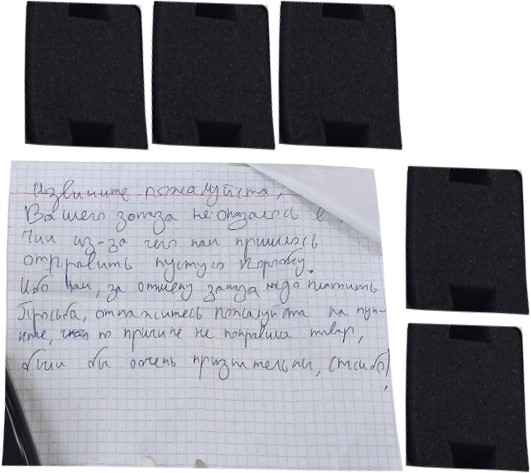 Извините пожалуйста,
Вашего заказа не оказалось в
чии из-за чего нам пришлось
отправить пустую коробку.
Ибо нам, за отмену заказа надо платить
Просьба, откажитесь пожалуйста на пун-
кте, по причине не понравился товар,
были бы очень признательны, спасибо